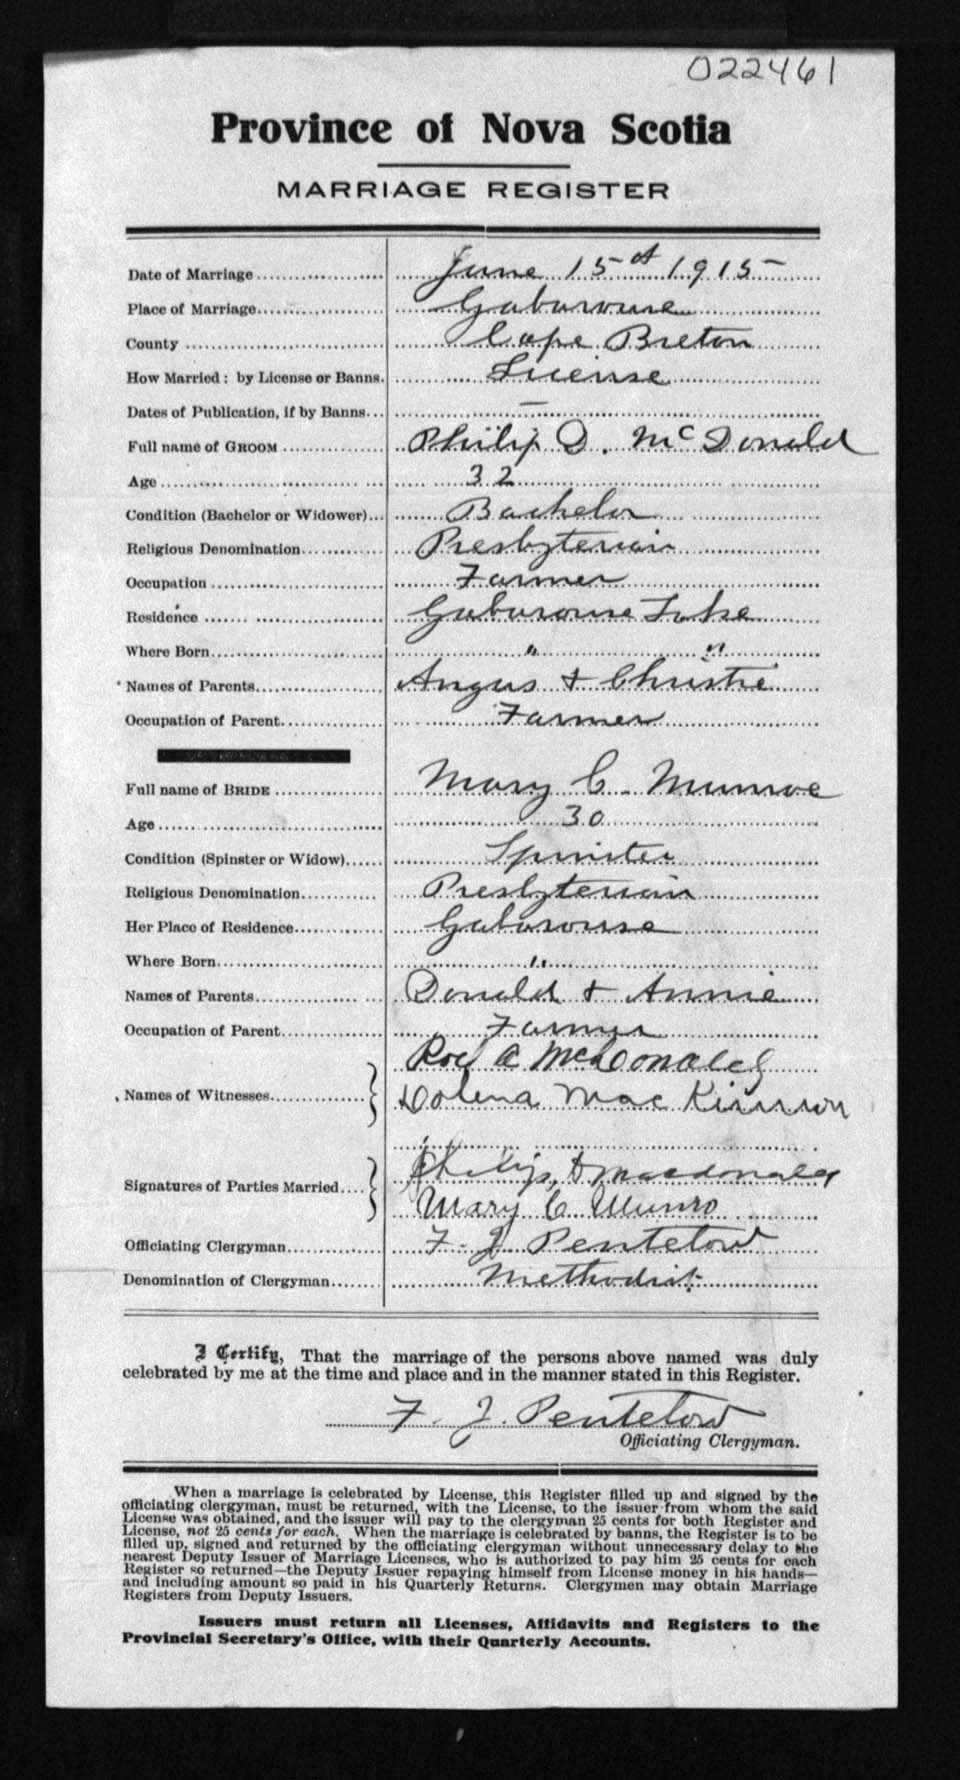 022461
Province of Nova Scotia
MARRIAGE REGISTER
Date of Marriage June 15th 1915
Place of Marriage Gabarouse
County Cape Breton
How Married: by License or Banns. License
Dates of Publication, if by Banns —
Full name of GROOM Philip D. McDonald
Age 32
Condition (Bachelor or Widower) Bachelor
Religious Denomination Presbyterian
Occupation Farmer
Residence Gabarouse Lake
Where Born " "
Names of Parents Angus & Christie
Occupation of Parent Farmer
Full name of BRIDE Mary C. Munroe
Age 30
Condition (Spinster or Widow) Spinster
Religious Denomination Presbyterian
Her Place of Residence Gabarouse
Where Born "
Names of Parents Donald & Annie
Occupation of Parent Farmer
Rod A McDonald
Names of Witnesses Dolena Mac Kinnon
Philip D Macdonald
Signatures of Parties Married
Mary C Munro
Officiating Clergyman F. J. Pentelow
Denomination of Clergyman Methodist
I Certify, That the marriage of the persons above named was duly
celebrated by me at the time and place and in the manner stated in this Register.
F. J. Pentelow
Officiating Clergyman.
When a marriage is celebrated by License, this Register filled up and signed by the
officiating clergyman, must be returned, with the License, to the issuer from whom the said
License was obtained, and the issuer will pay to the clergyman 25 cents for both Register and
License, not 25 cents for each. When the marriage is celebrated by banns, the Register is to be
filled up, signed and returned by the officiating clergyman without unnecessary delay to the
nearest Deputy Issuer of Marriage Licenses, who is authorized to pay him 25 cents for each
Register so returned—the Deputy Issuer repaying himself from License money in his hands—
and including amount so paid in his Quarterly Returns. Clergymen may obtain Marriage
Registers from Deputy Issuers.
Issuers must return all Licenses, Affidavits and Registers to the
Provincial Secretary's Office, with their Quarterly Accounts.